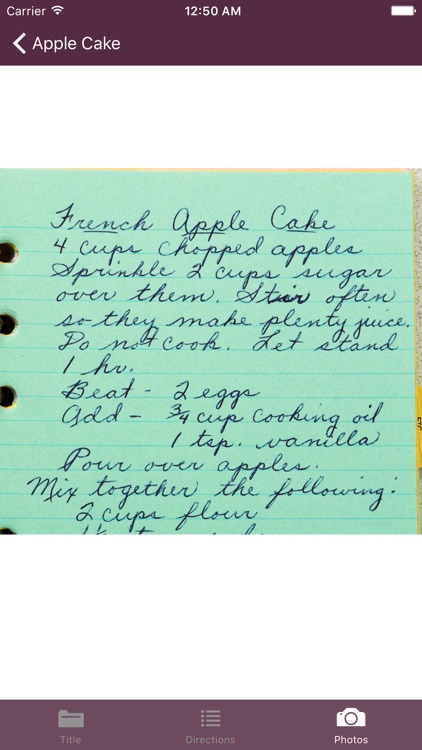 Carrier 12:50 AM
Apple Cake
French Apple Cake
4 cups chopped apples
Sprinkle 2 cups sugar
over them. Stir often
so they make plenty juice.
Do not cook. Let stand
1 hr.
Beat - 2 eggs
Add - 3/4 cup cooking oil
1 tsp. vanilla
Pour over apples.
Mix together the following:
2 cups flour
Title Directions Photos